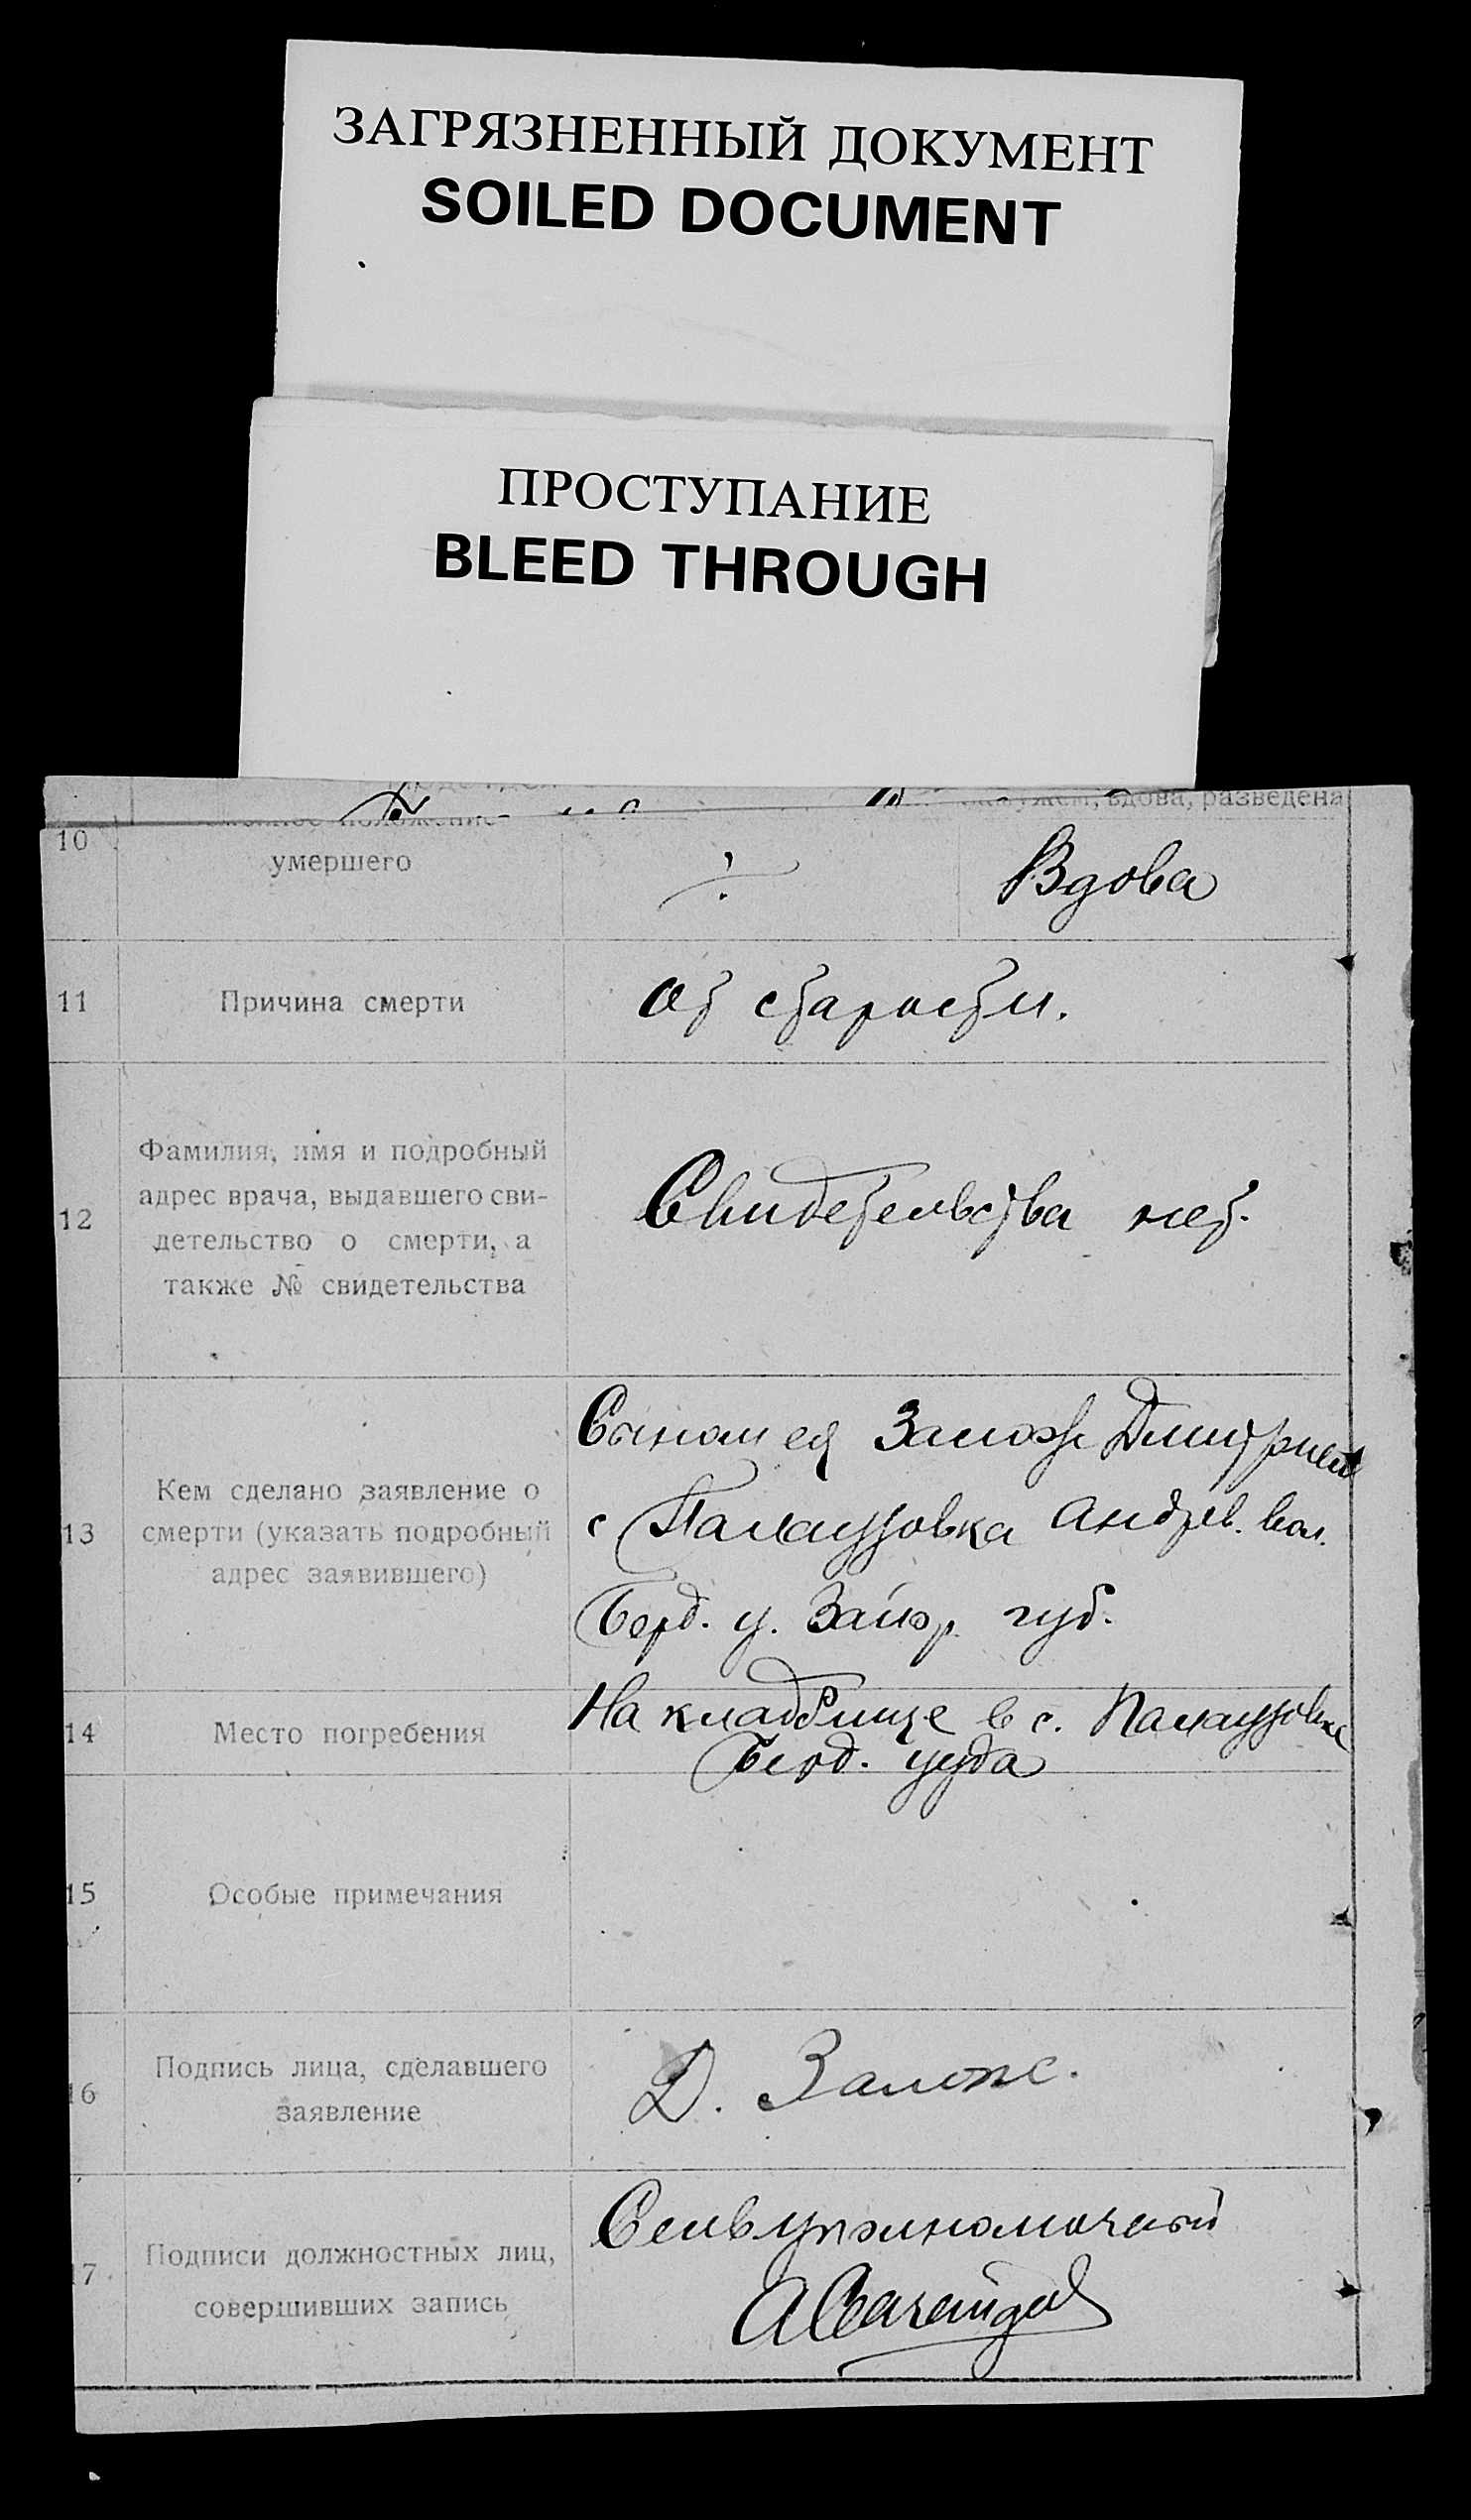 ЗАГРЯЗНЕННЫЙ ДОКУМЕНТ
SOILED DOCUMENT
ПРОСТУПАНИЕ
BLEED THROUGH
вдова, разведена
10
умершего
Вдова
11
Причина смерти
От старости.
12
Фамилия, имя и подробный
адрес врача, выдавшего сви-
детельство о смерти, а
также № свидетельства
Свидетельства нет.
13
Кем сделано заявление о
смерти (указать подробный
адрес заявившего)
Сыном ея Залож Дмитрием
с Палаузовка Андрев. вол.
Берд. у. Запор. губ.
14
Место погребения
На кладбище в с. Палаузовке
Берд. уезда
15
Особые примечания
16
Подпись лица, сделавшего
заявление
Д. Залож.
17
Подписи должностных лиц,
совершивших запись
Сельуполномоченый